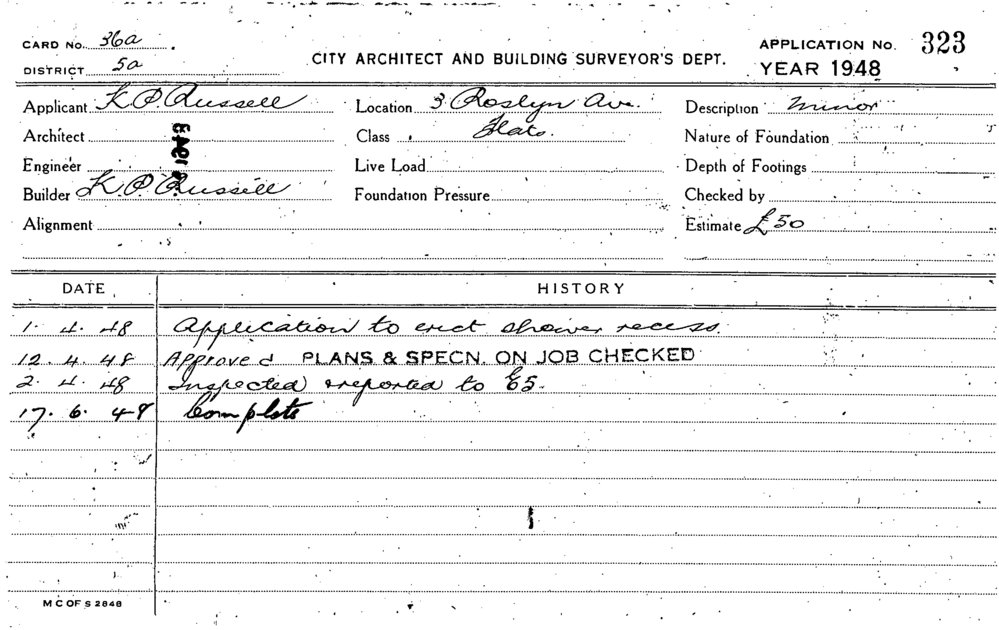 CARD No. 36a
DISTRICT 5a
CITY ARCHITECT AND BUILDING SURVEYOR'S DEPT.
APPLICATION No. 323
YEAR 1948
Applicant K P Russell Location 3 Roslyn Ave. Description minor
Architect Class Flats. Nature of Foundation
Engineer Live Load Depth of Footings
Builder K. P. Russell Foundation Pressure Checked by
Alignment Estimate £50
DATE HISTORY
1. 4. 48 Application to erect shower recess.
12. 4. 48 Approved PLANS & SPECN. ON JOB CHECKED
2. 4. 48 Inspected & reported to
17. 6. 48 Complete
M C OF S 2848